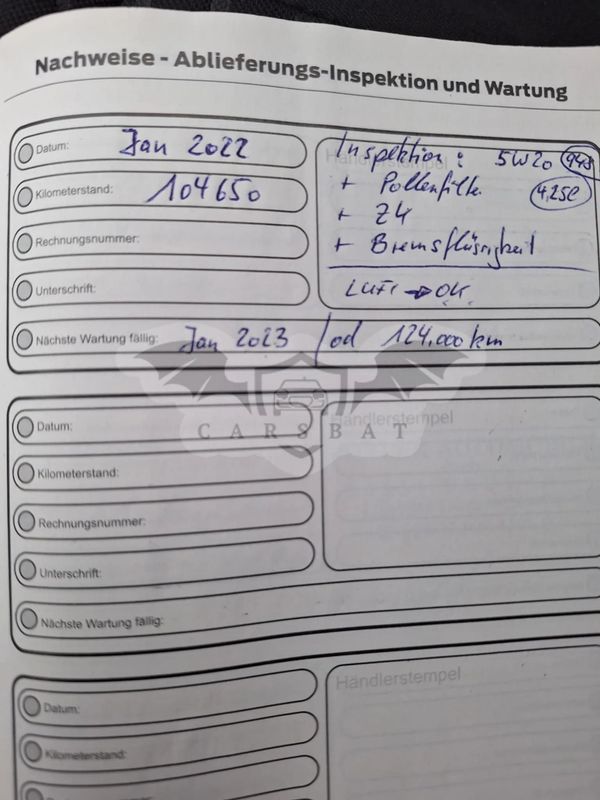 Nachweise - Ablieferungs-Inspektion und Wartung
Datum: Jan 2022
Kilometerstand: 104650
Rechnungsnummer:
Unterschrift:
Inspektion: 5W20 948
+ Pollenfilte. 4,25l
+ Z4
+ Bremsflüssigkeit
LUFT → OK
Nächste Wartung fällig: Jan 2023 / od 124.000 km
CARSBAT
Datum:
Kilometerstand:
Rechnungsnummer:
Unterschrift:
Händlerstempel
Nächste Wartung fällig:
Datum:
Kilometerstand:
Händlerstempel